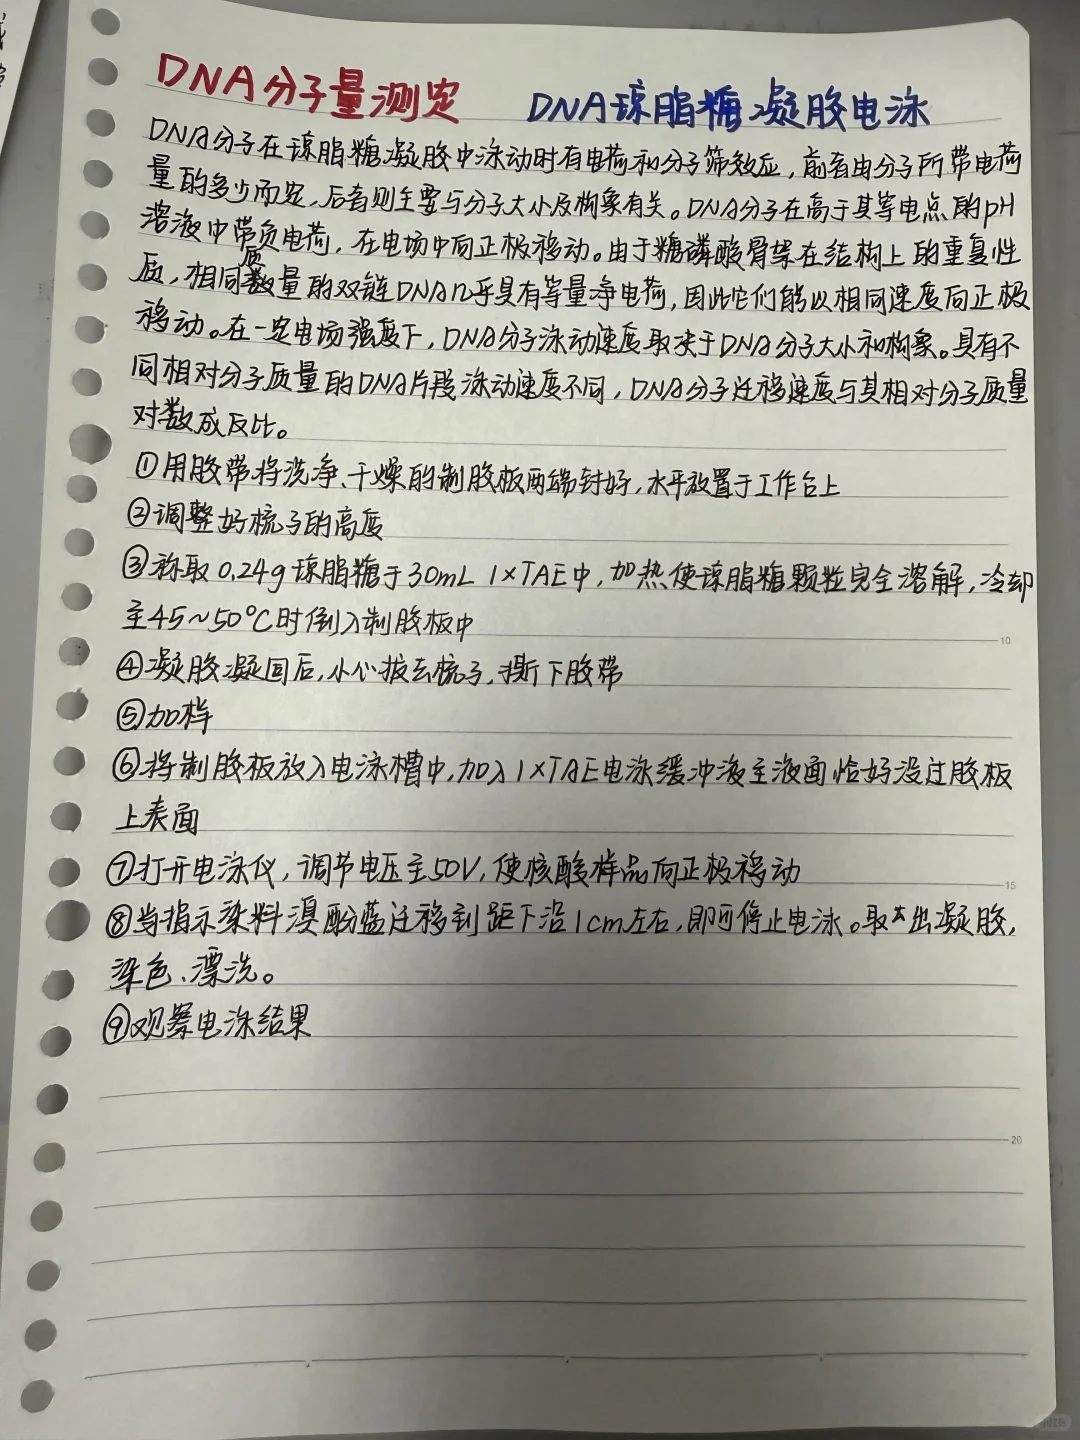 DNA分子量测定 DNA琼脂糖凝胶电泳
DNA分子在琼脂糖凝胶中泳动时有电荷和分子筛效应，前者由分子所带电荷
量的多少而定，后者则主要与分子大小及构象有关。DNA分子在高于其等电点的pH
溶液中带负电荷，在电场中向正极移动。由于糖磷酸骨架在结构上的重复性
质，相同质量的双链DNA几乎具有等量净电荷，因此它们能以相同速度向正极
移动。在一定电场强度下，DNA分子泳动速度取决于DNA分子大小和构象。具有不
同相对分子质量的DNA片段泳动速度不同，DNA分子迁移速度与其相对分子质量
对数成反比。
①用胶带将洗净、干燥的制胶板两端封好，水平放置于工作台上
②调整好梳子的高度
③称取0.24g琼脂糖于30mL 1×TAE中，加热使琼脂糖颗粒完全溶解，冷却
至45~50℃时倒入制胶板中
④凝胶凝固后，小心拔去梳子，撕下胶带
⑤加样
⑥将制胶板放入电泳槽中，加入1×TAE电泳缓冲液至液面恰好没过胶板
上表面
⑦打开电泳仪，调节电压至50V，使核酸样品向正极移动
⑧当指示染料溴酚蓝迁移到距下沿1cm左右，即可停止电泳。取出凝胶，
染色、漂洗。
⑨观察电泳结果
10
15
20